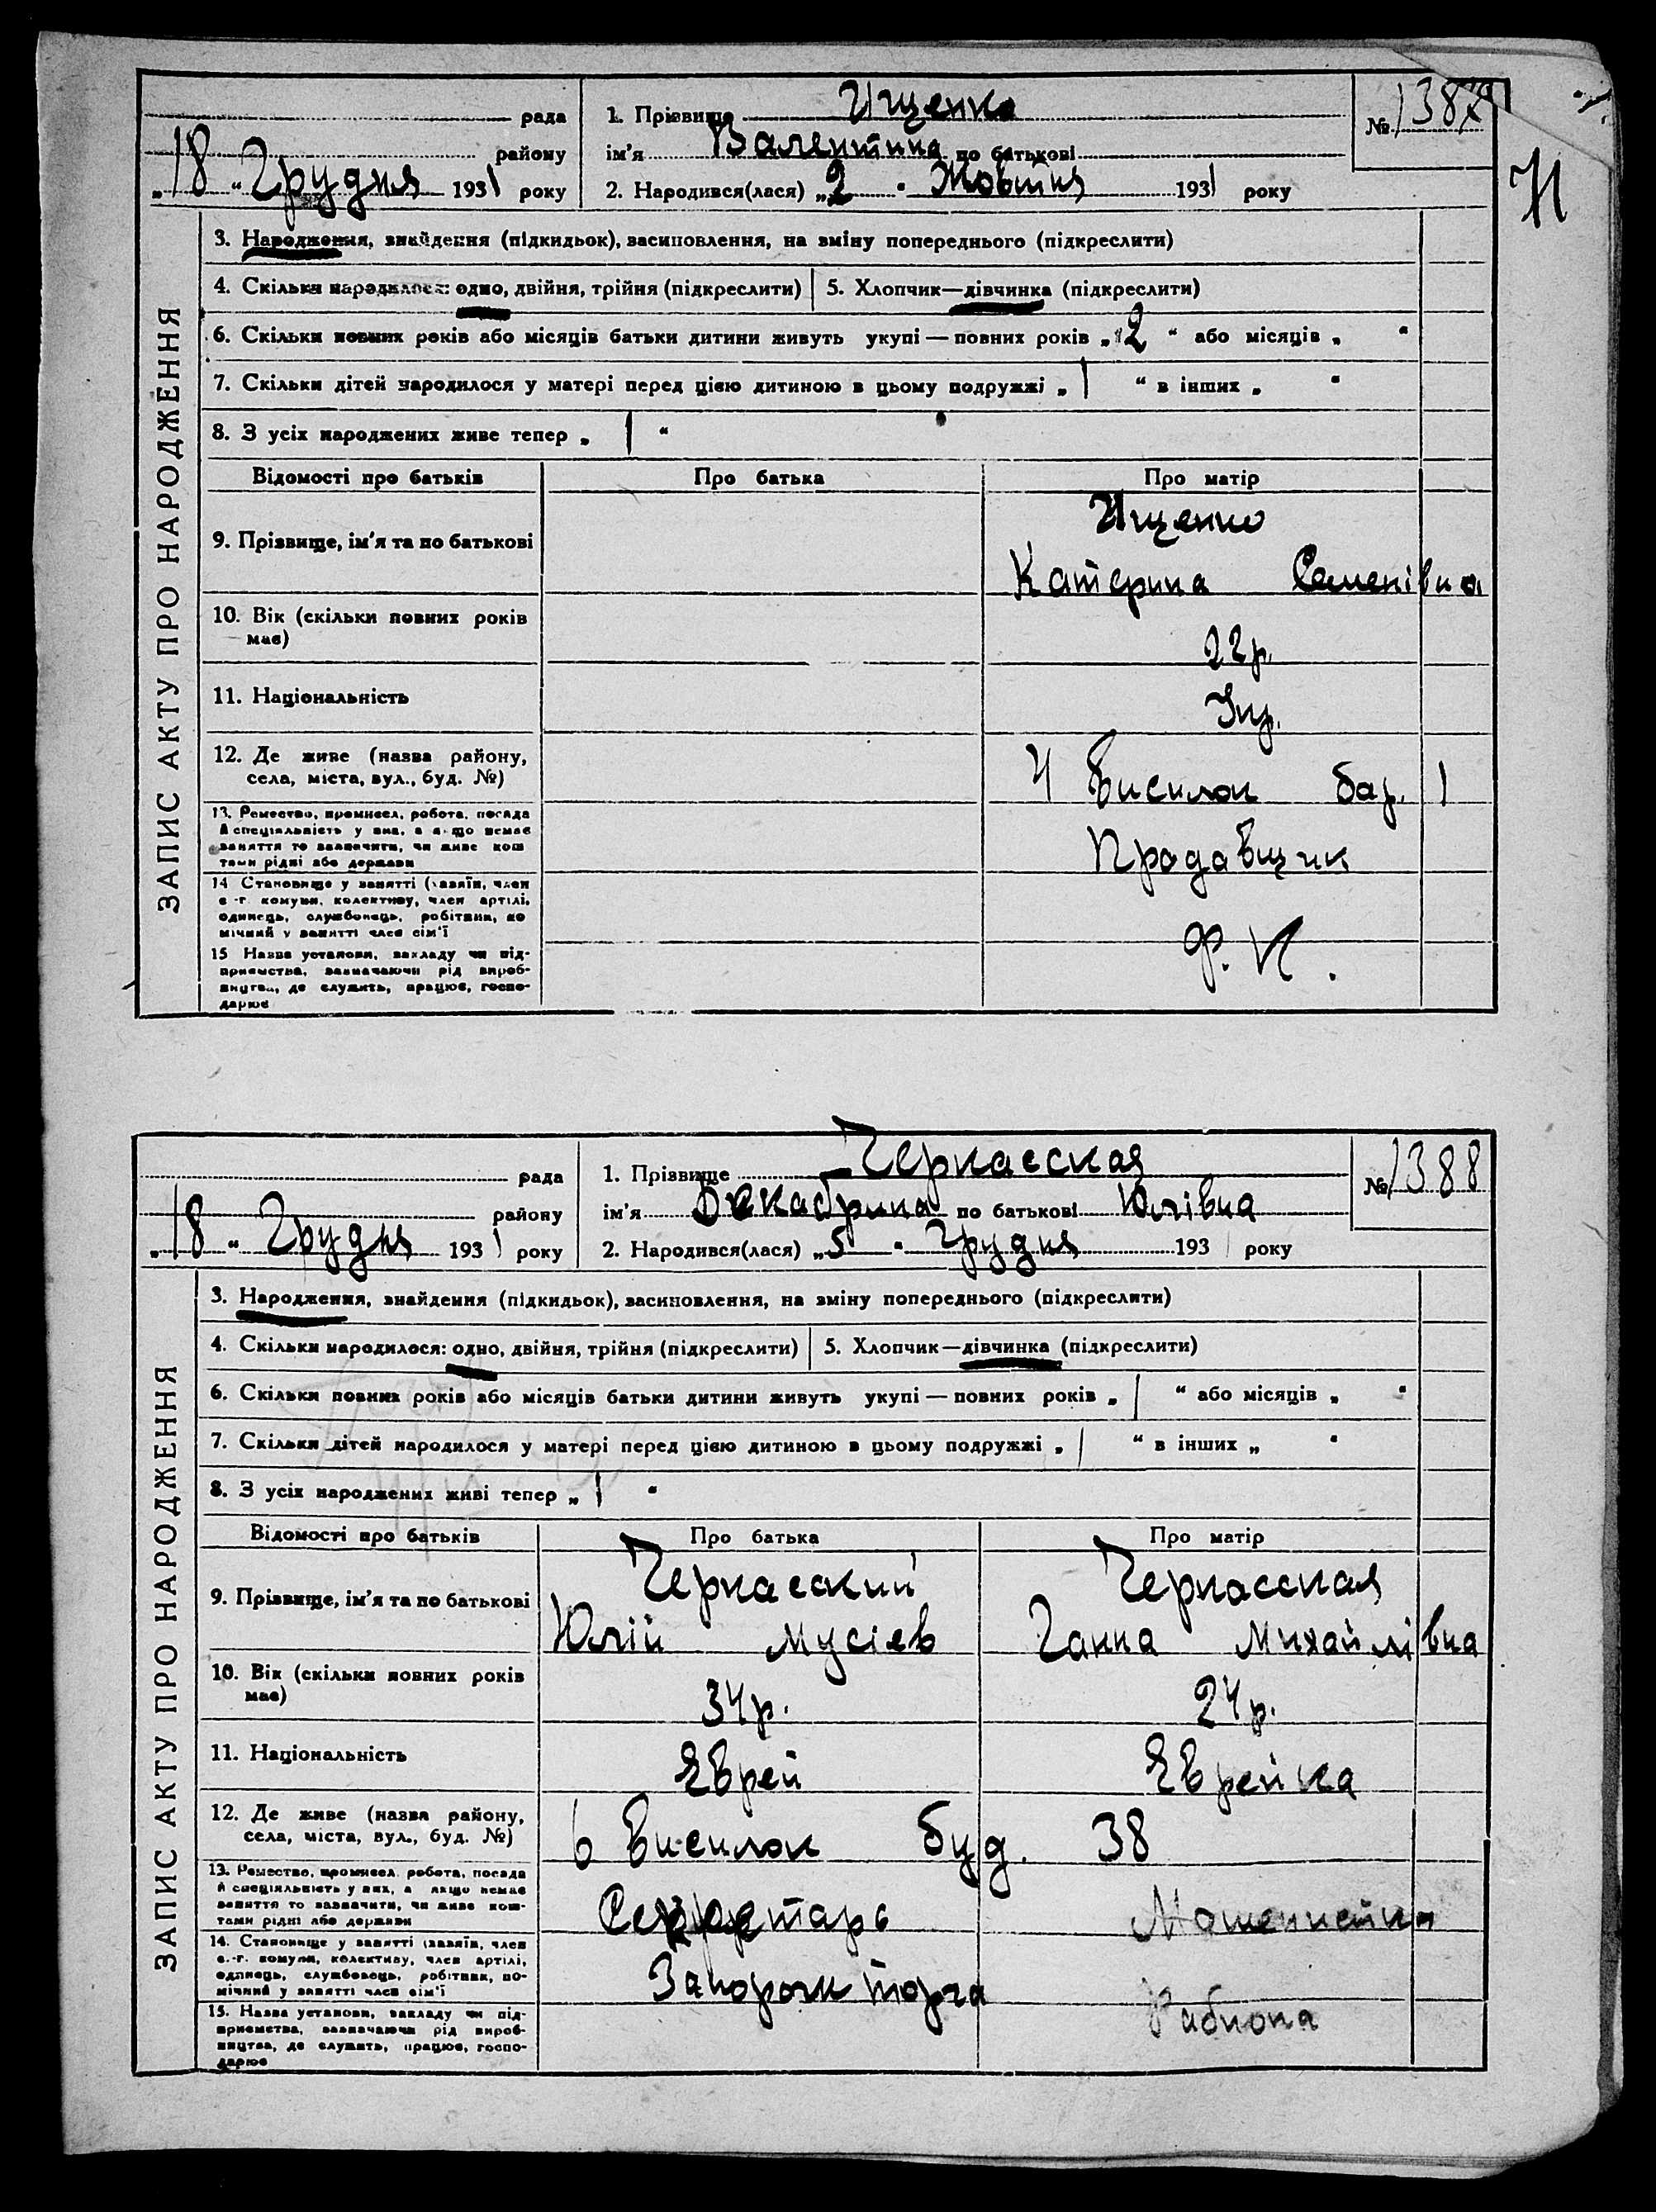 рада
1. Прізвище Ищенко
№ 1387
71
району
ім'я Валентина по батькові
„18“ Грудня 1931 року
2. Народився(лася) „2“ Жовтня 1931 року
ЗАПИС АКТУ ПРО НАРОДЖЕННЯ
3. Народження, знайдення (підкидьок), засиновлення, на зміну попереднього (підкреслити)
4. Скільки народилося: одно, двійня, трійня (підкреслити) 5. Хлопчик—дівчинка (підкреслити)
6. Скільки повних років або місяців батьки дитини живуть укупі — повних років „2“ або місяців „ “
7. Скільки дітей народилося у матері перед цією дитиною в цьому подружжі „1“ в інших „ “
8. З усіх народжених живе тепер „1“
Відомості про батьків Про батька Про матір
9. Прізвище, ім'я та по батькові
Ищенко
Катерина Семенівна
10. Вік (скільки повних років
має)
22р.
11. Національність
Укр.
12. Де живе (назва району,
села, міста, вул., буд. №)
4 Висилок бар. 1
13. Ремество, промисел, робота, посада
й спеціяльність у яка, а якщо немає
заняття то зазначити, чи живе кош
тами рідні або держави
Продавщик
14 Становище у занятті (хазяїн, член
с.-г. комуни, колективу, член артілі,
одинець, службовець, робітник, по
мічний у занятті член сім'ї
15 Назва установи, закладу чи під-
приємства, зазначаючи рід вироб-
ництва, де служить, працює, госпо-
дарює
рада
1. Прізвище Черкасская
№ 1388
району
ім'я Декабрина по батькові Юлівна
„18“ Грудня 1931 року
2. Народився(лася) „5“ Грудня 1931 року
ЗАПИС АКТУ ПРО НАРОДЖЕННЯ
3. Народження, знайдення (підкидьок), засиновлення, на зміну попереднього (підкреслити)
4. Скільки народилося: одно, двійня, трійня (підкреслити) 5. Хлопчик—дівчинка (підкреслити)
6. Скільки повних років або місяців батьки дитини живуть укупі — повних років „1“ або місяців „ “
7. Скільки дітей народилося у матері перед цією дитиною в цьому подружжі „1“ в інших „ “
8. З усіх народжених живі тепер „1“
Відомості про батьків Про батька Про матір
9. Прізвище, ім'я та по батькові
Черкасский Черкасская
Юлій Мусіев Ганна Михайлівна
10. Вік (скільки повних років
має)
34р. 24р.
11. Національність
Еврей Еврейка
12. Де живе (назва району,
села, міста, вул., буд. №)
6 Висилок буд. 38
13. Ремество, промисел, робота, посада
й спеціяльність у них, а якщо немає
заняття то зазначити, чи живе кош-
тами рідні або держави
Секретарь Машенистка
14. Становище у занятті (хазяїн, член
с.-г. комуни, колективу, член артілі,
одинець, службовець, робітник, по-
мічний у занятті член сім'ї
Запорожторга
15. Назва установи, закладу чи під-
приємства, зазначаючи рід вироб-
ництва, де служить, працює, госпо-
дарює